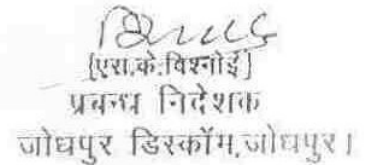 (एस.के.विश्नोई)
प्रबन्ध निदेशक
जोधपुर डिस्कॉम,जोधपुर।